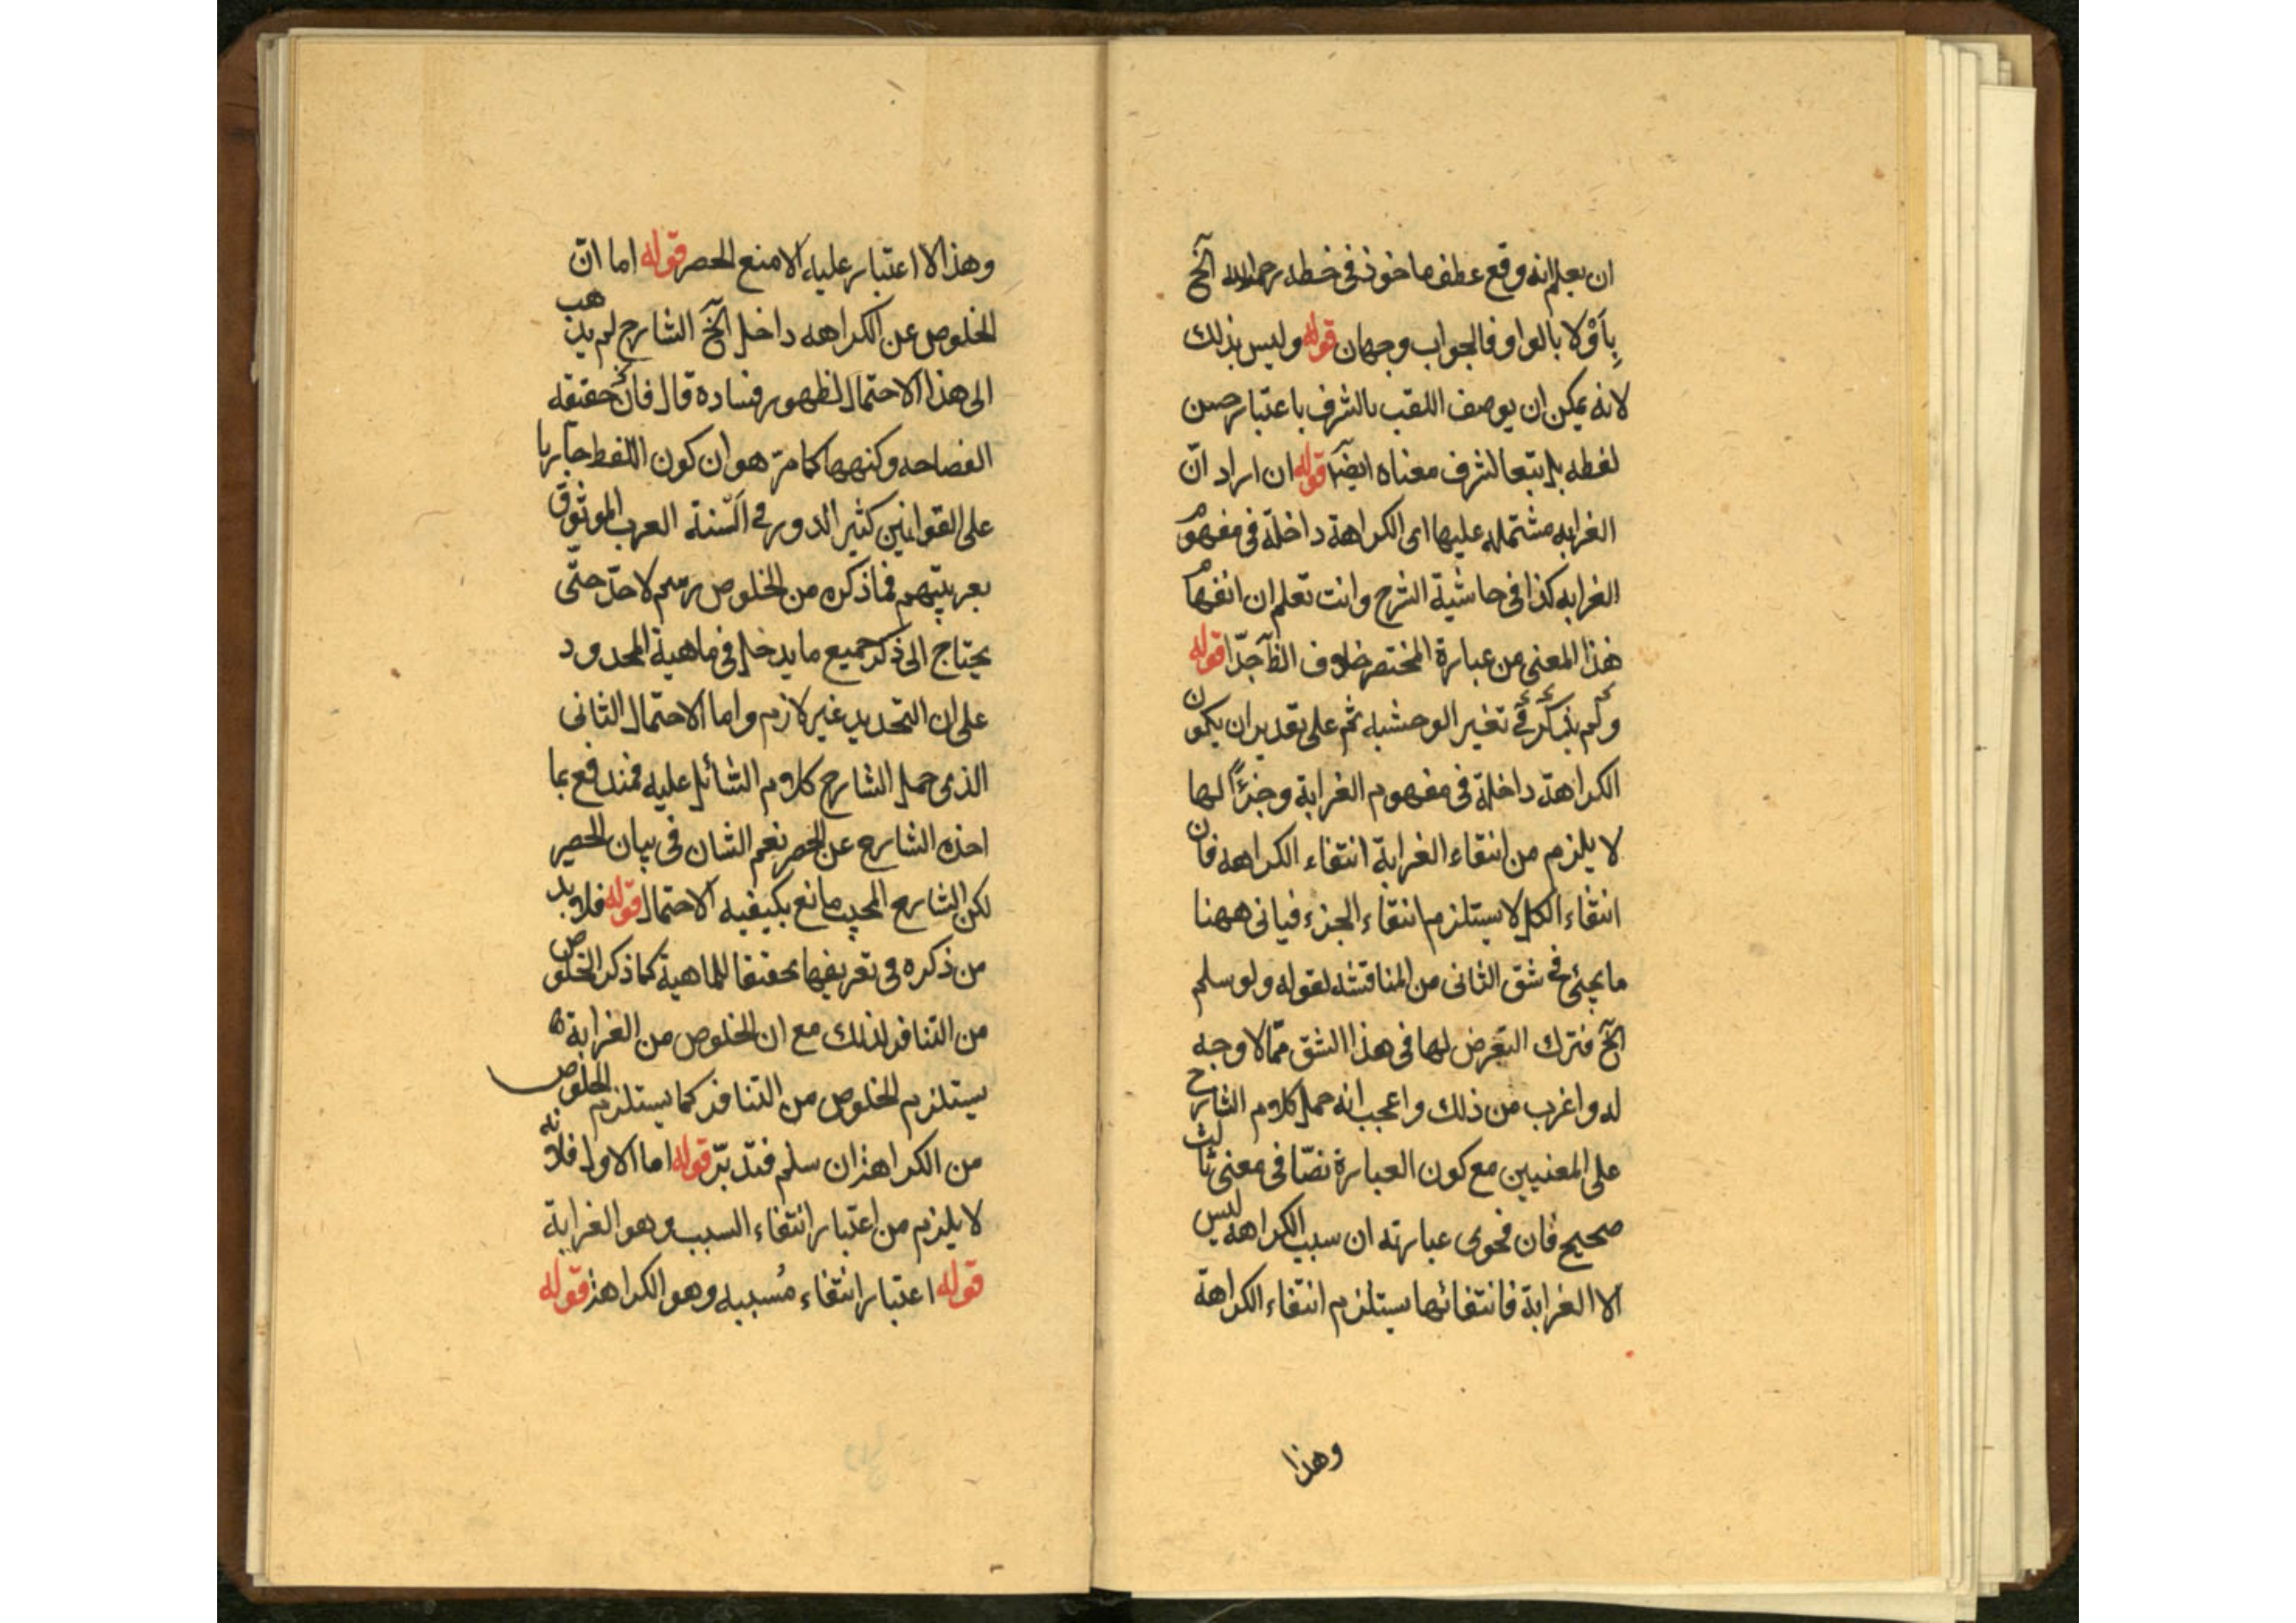 ان يعلم انه وقع عطف ماخوذ فى خطه رحمه الله آلخ
بِاَوْ لا بالواو فالجواب وجهان قوله وليس بذلك
لانه يمكن ان يوصف اللقب بالشرف باعتبار حسن
لفظه بل يتبعا لشرف معناه ايضًا قوله ان اراد انّ
الغرابه مشتمله عليها اى الكراهة داخلة فى مفهوم
الغرابه كذا فى حاشية الشرح وانت تعلم ان انفهام
هذا المعنى من عبارة المختصر خلاف الظآ جدّا قوله
ولم يذكر فى تفسير الوحشيه ثم على تقدير ان يكون
الكراهة داخلة فى مفهوم الغرابة وجزءًا لها
لا يلزم من انتفاء الغرابة انتفاء الكراهه فان
انتفاء الكل لا يستلزم انتفاء الجزء فيانى ههنا
ما يجئ فى شق الثانى من المناقشه لقوله ولو سلم
آلخ فترك التعرض لها فى هذا الشق ممّا لا وجه
له واغرب من ذلك واعجب انه حمل كلام الشارح
على المعنيين مع كون العبارة نصّا فى معنى ثالث
صحيح فان فحوى عبارته ان سبب الكراهه ليس
الا الغرابة فانتفائها يستلزم انتفاء الكراهة
وهذا
وهذا لا اعتبار عليه الا منع الحصر قوله اما انّ
الخلوص عن الكراهه داخل آلخ الشارح لم يذهب
الى هذا الاحتمال لظهور فساده قال فان حقيقه
الفصاحه وكنهها كما مرّ هو ان كون اللفظ جاريا
على القوانين كثير الدور فى السنة العرب الموثوق
بعربيتهم فما ذكره من الخلوص رسم لا حدّ حتّى
يحتاج الى ذكر جميع ما يدخل فى ماهية المحدود
على ان التحديد غير لازم واما الاحتمال الثانى
الذى حمل الشارح كلام الشائل عليه فمندفع بما
اخذه الشارح عن الحصر نعم الشان فى بيان الحصر
لكن الشارح المجيب مانع يكيفيه الاحتمال قوله فلا بد
من ذكره فى تعريفها تحقيقا للماهية كما ذكر الخلوص
من التنافر لذلك مع ان الخلوص من الغرابة
يستلزم الخلوص من التنافر كما يستلزم الخلوص
من الكراهة ان سلم فتدبّر قوله اما الاول فلانه
لا يلزم من اعتبار انتفاء السبب وهو الغرابة
قوله اعتبار انتفاء مُسببه وهو الكراهة قوله